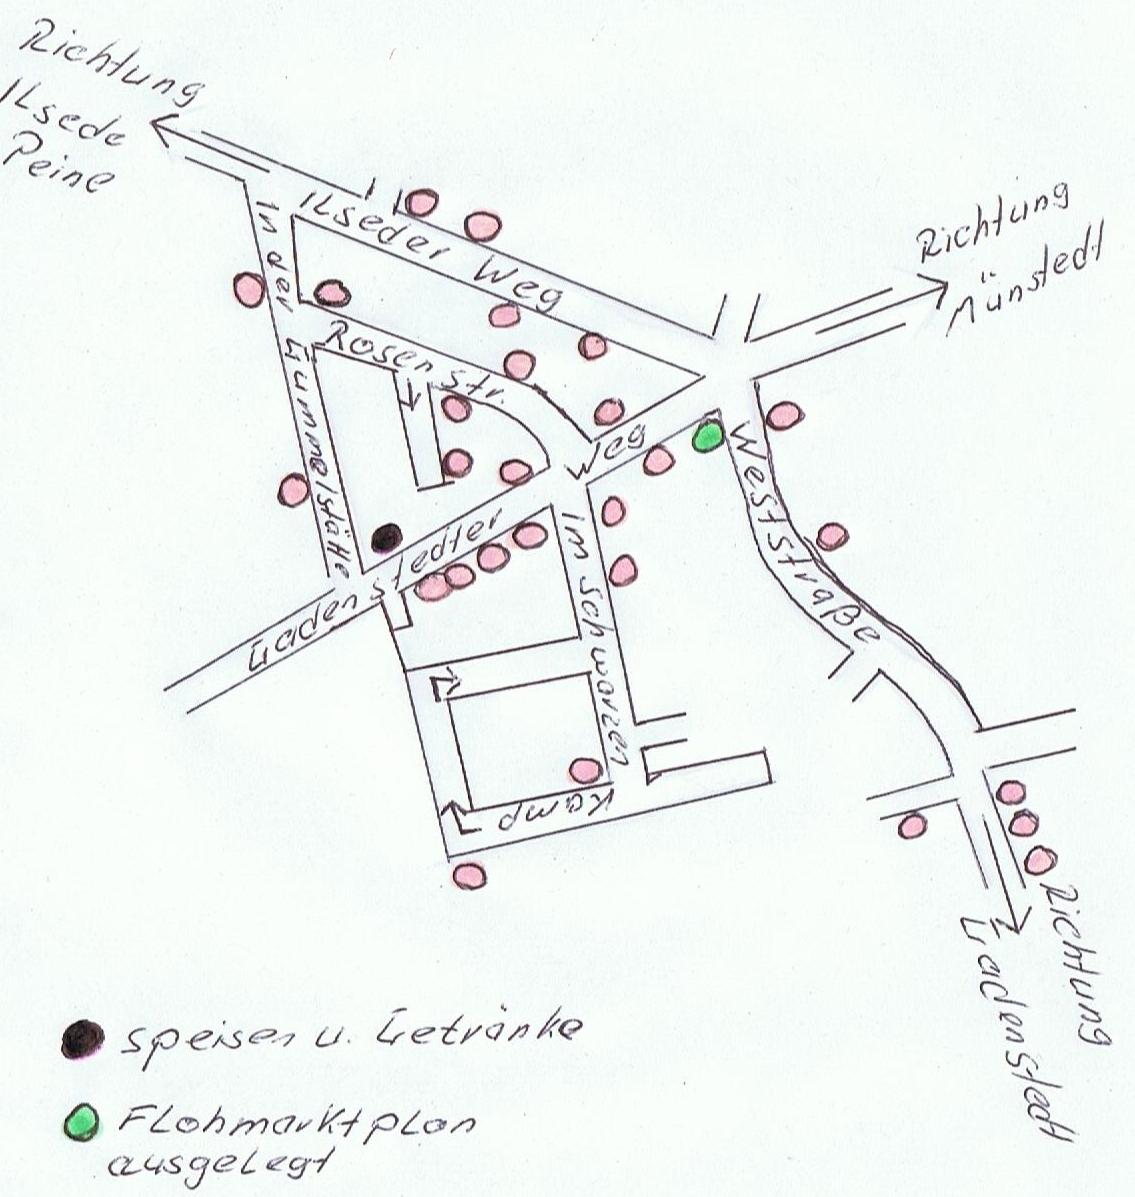 Richtung
ILsede
Peine
ILseder Weg
Richtung
Münstedt
In der Gummelstätte
Rosenstr.
Gadenstedter Weg
Im schwarzen
Kamp
Weststraße
Richtung
Gadenstedt
speisen u. Getränke
FLohmarktplan
ausgelegt